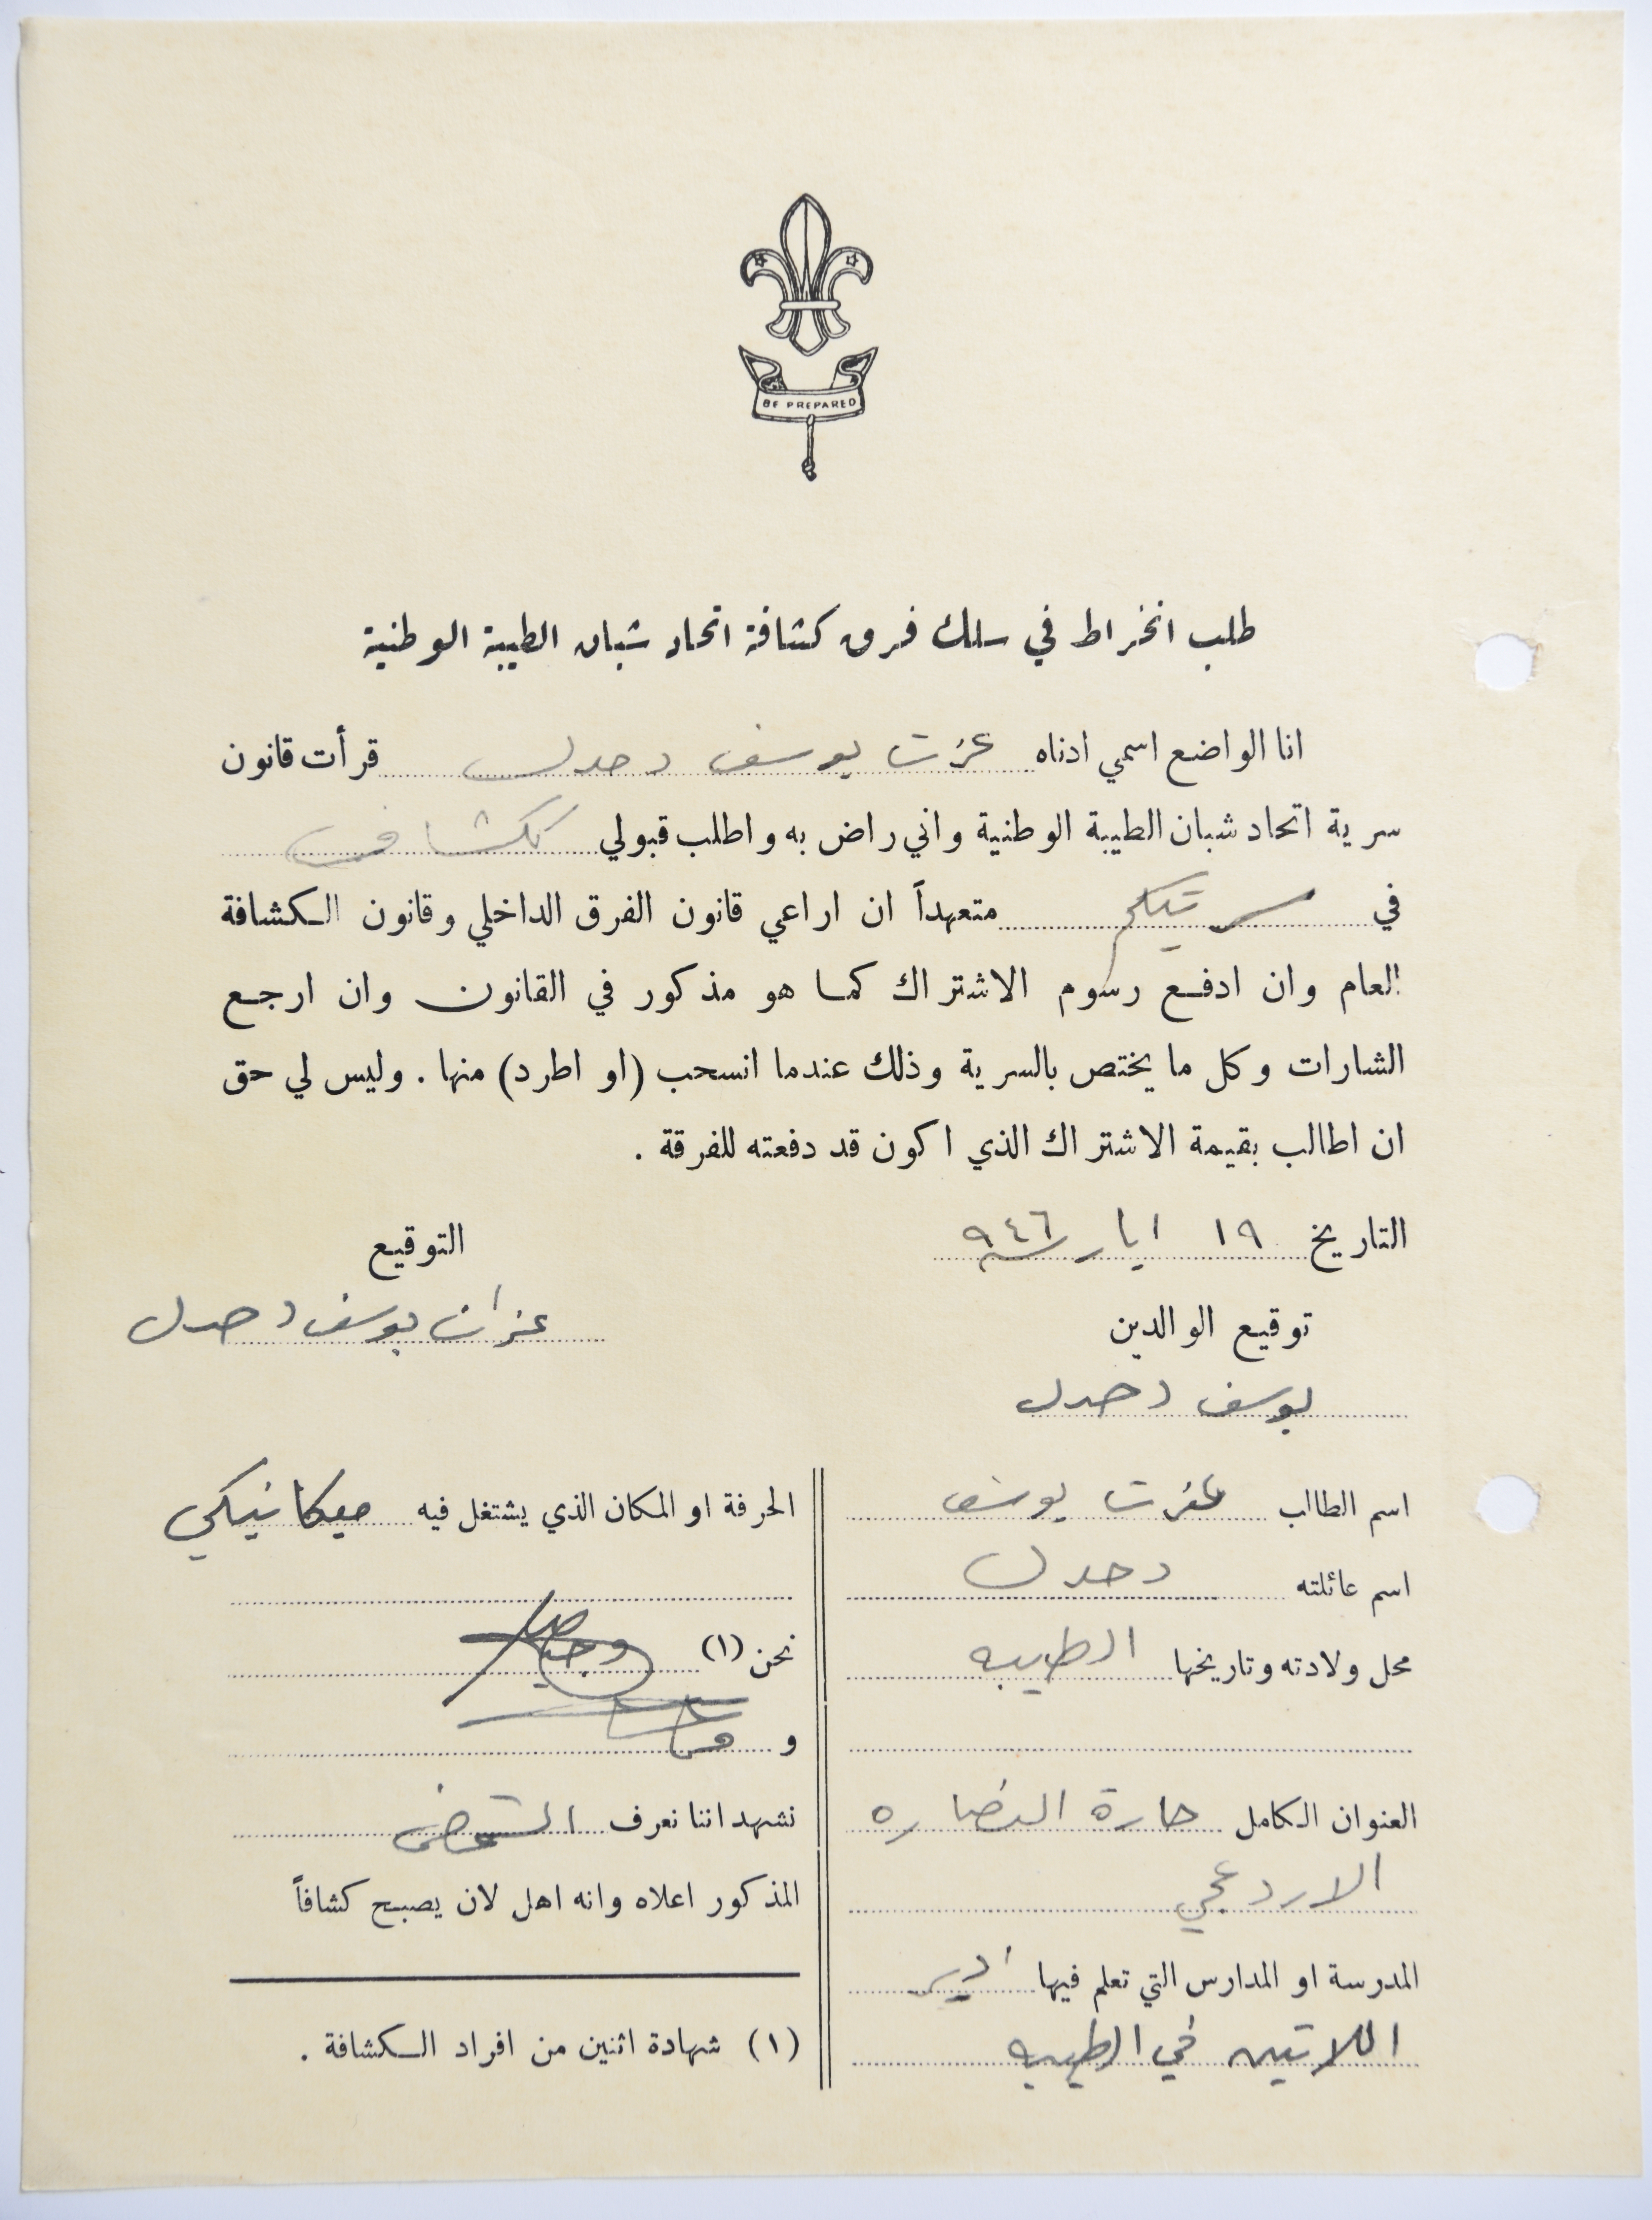 BE PREPARED
طلب انخراط في سلك فرق كشافة اتحاد شبان الطيبة الوطنية
انا الواضع اسمي ادناه عزت يوسف دحدل قرأت قانون
سرية اتحاد شبان الطيبة الوطنية واني راض به واطلب قبولي ككشاف
في سريتكم متعهداً ان اراعي قانون الفرق الداخلي وقانون الكشافة
العام وان ادفع رسوم الاشتراك كما هو مذكور في القانون وان ارجع
الشارات وكل ما يختص بالسرية وذلك عندما انسحب (او اطرد) منها . وليس لي حق
ان اطالب بقيمة الاشتراك الذي اكون قد دفعته للفرقة .
التاريخ ١٩ ايار ٩٤٦
التوقيع
يوسف دحدل
توقيع الوالدين
يوسف دحدل
اسم الطالب عزت يوسف
اسم عائلته دحدل
محل ولادته وتاريخها الطيبه
العنوان الكامل حارة النصاره
المدرسة او المدارس التي تعلم فيها دير
اللاتين في الطيبه
الحرفة او المكان الذي يشتغل فيه ميكانيكي
نحن (١)
و
نشهد اننا نعرف الشخص
المذكور اعلاه وانه اهل لان يصبح كشافاً
(١) شهادة اثنين من افراد الكشافة .